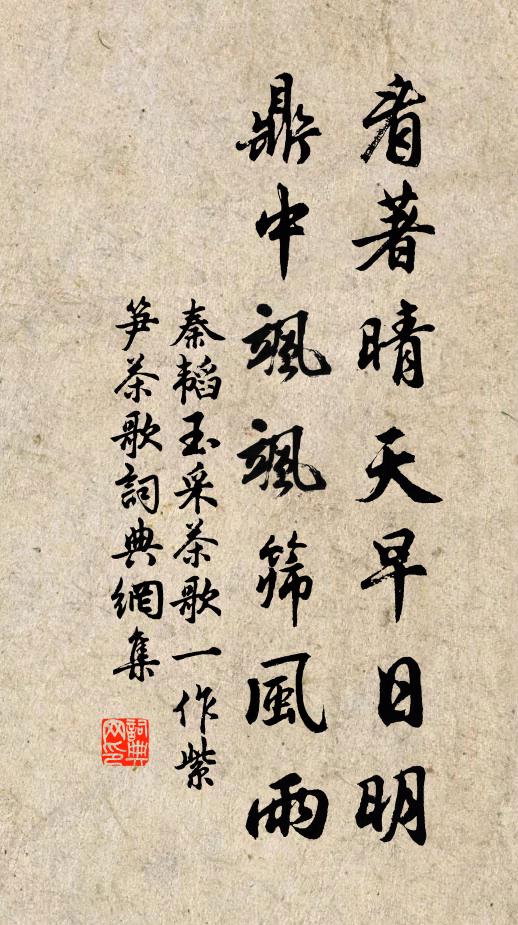 看著晴天早日明
鼎中颯颯篩風雨
秦韜玉采茶歌一作紫
笋茶歌詞典網集
詞典
网印